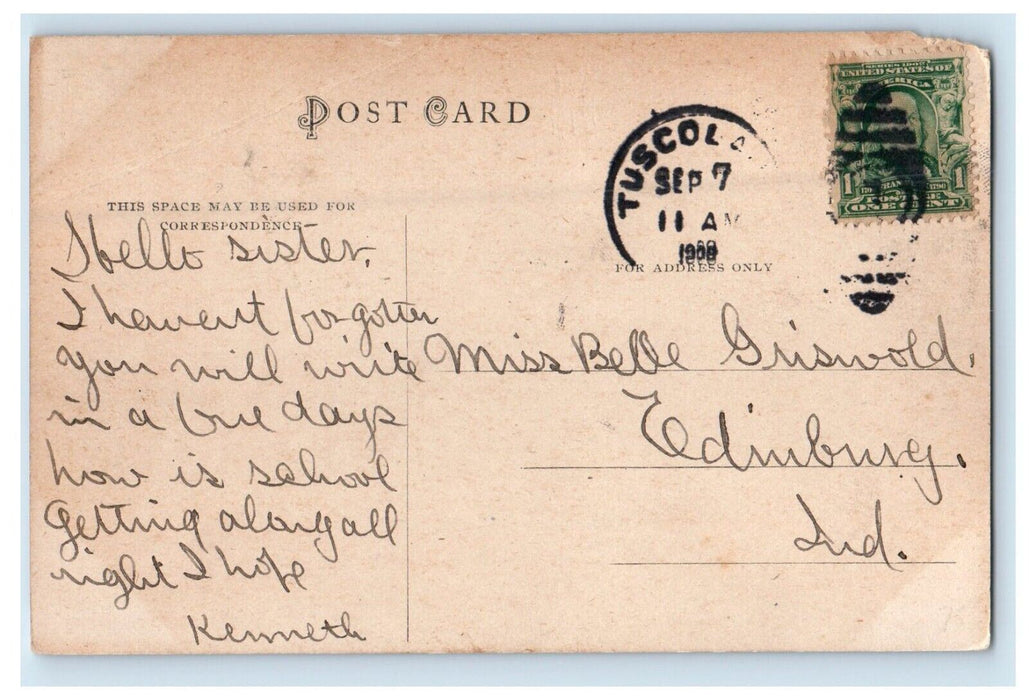 POST CARD
THIS SPACE MAY BE USED FOR
CORRESPONDENCE
Hello sister.
I havent forgotten
you will write
in a few days
how is school
Getting along all
right I hope
Kenneth
TUSCOLA
SEP 7
11 AM
SERIES 1902
UNITED STATES OF
AMERICA
1
1
POSTAGE
ONE CENT
FOR ADDRESS ONLY
Miss Belle Griswold.
Edinburg.
Ind.